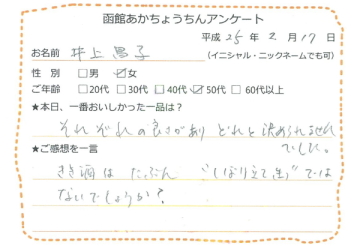 函館あかちょうちんアンケート
平成 25 年 2 月 17 日
お名前 井上 昌子 (イニシャル・ニックネームでも可)
性 別 □男 ☑女
ご年齢 □20代 □30代 □40代 ☑50代 □60代以上
★本日、一番おいしかった一品は?
それぞれの良さがあり どれと決められません
でした。
★ご感想を一言
きき酒は たぶん "しぼり立て生"では
ないでしょうか?